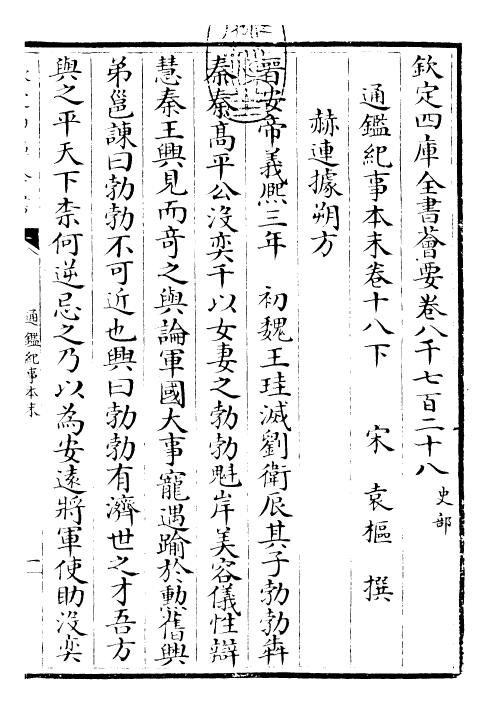 欽定四庫全書薈要卷八千七百二十八 史部
通鑑紀事本末卷十八下 宋 袁樞 撰
赫連據朔方
晉安帝義熙三年 初魏王珪滅劉衛辰其子勃勃犇
秦秦髙平公沒奕干以女妻之勃勃魁岸美容儀性辯
慧秦王興見而竒之與論軍國大事寵遇踰於勲舊興
弟邕諌曰勃勃不可近也興曰勃勃有濟世之才吾方
與之平天下柰何逆忌之乃以為安遠將軍使助沒奕
通鑑紀事本末
一